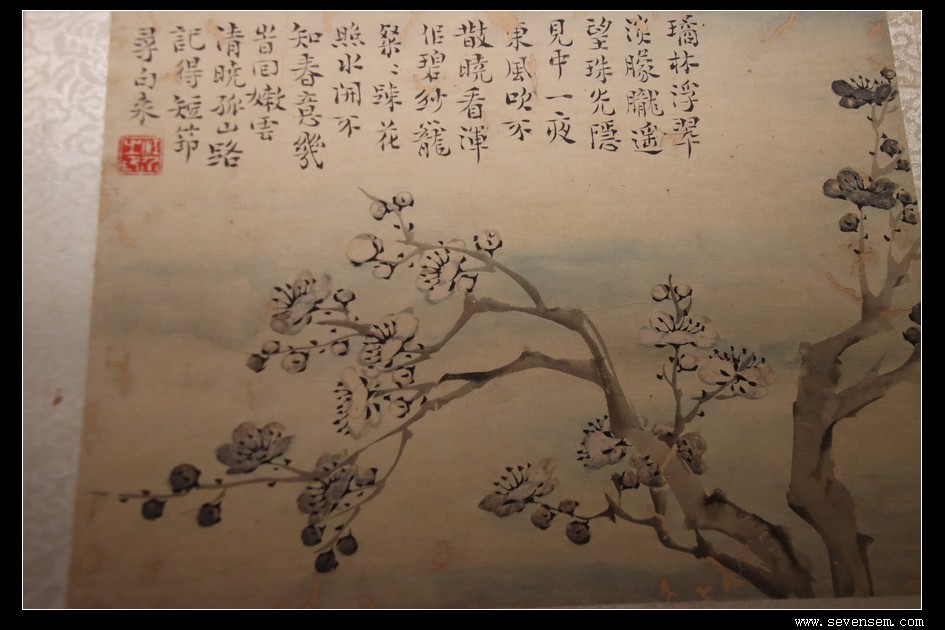 璚林浮翠
淡朦朧遥
望珠光隱
見中一夜
東風吹不
散曉看渾
佀碧紗籠
粲〻疎花
照水開不
知春意幾
旹回嫩雲
清曉孤山路
記得短筇
尋句来
www.sevensem.com